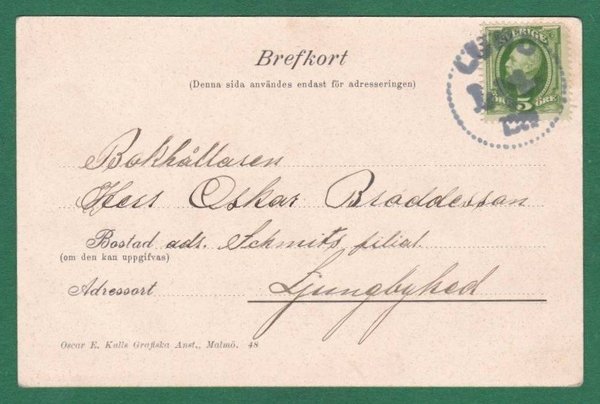 Brefkort
(Denna sida användes endast för adresseringen)
SVERIGE
5
ÖRE
Bokhållaren
Herr Oskar Broddesson
Bostad adr. Schmits filial
(om den kan uppgifvas)
Adressort Ljungbyhed
Oscar E. Kulls Grafiska Anst., Malmö. 48